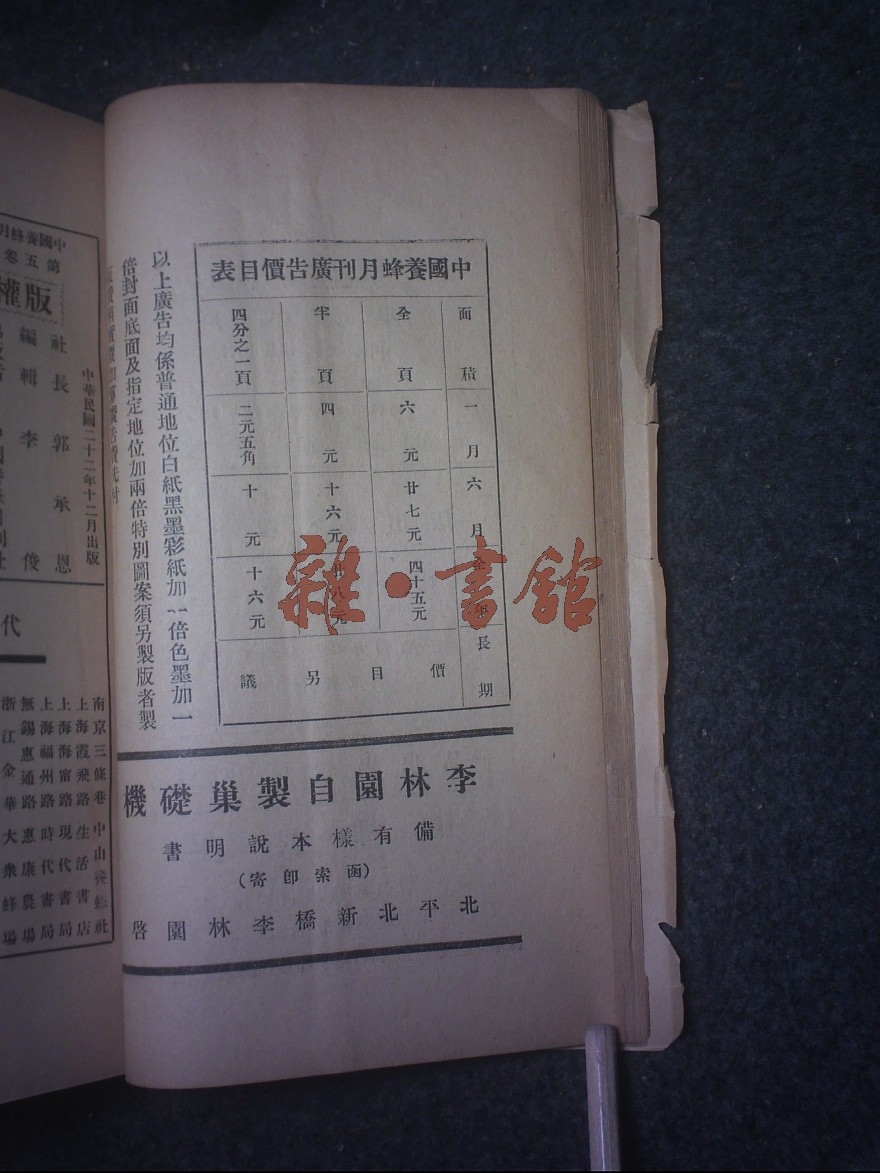 中國養蜂月刊廣告價目表
面積 一月 六月 全年 長期
全頁 六元 廿七元 四十五元
半頁 四元 十六元 廿八元
四分之一頁 二元五角 十元 十六元
價目另議
以上廣告均係普通地位白紙黑墨彩紙加一倍色墨加一
倍封面底面及指定地位加兩倍特別圖案須另製版者製
李林園自製巢礎機
備有樣本說明書
(函索即寄)
北平北新橋李林園啓
中國養蜂月
第五卷
版權
中華民國二十二年十二月出版
社長郭承恩
編輯李俊
代
南京三條巷中山養蜂社
上海霞飛路生活書店
上海海甯路現代書局
上海福州路時代書局
無錫惠通路惠康農場
浙江金華大衆蜂場
雜·書館